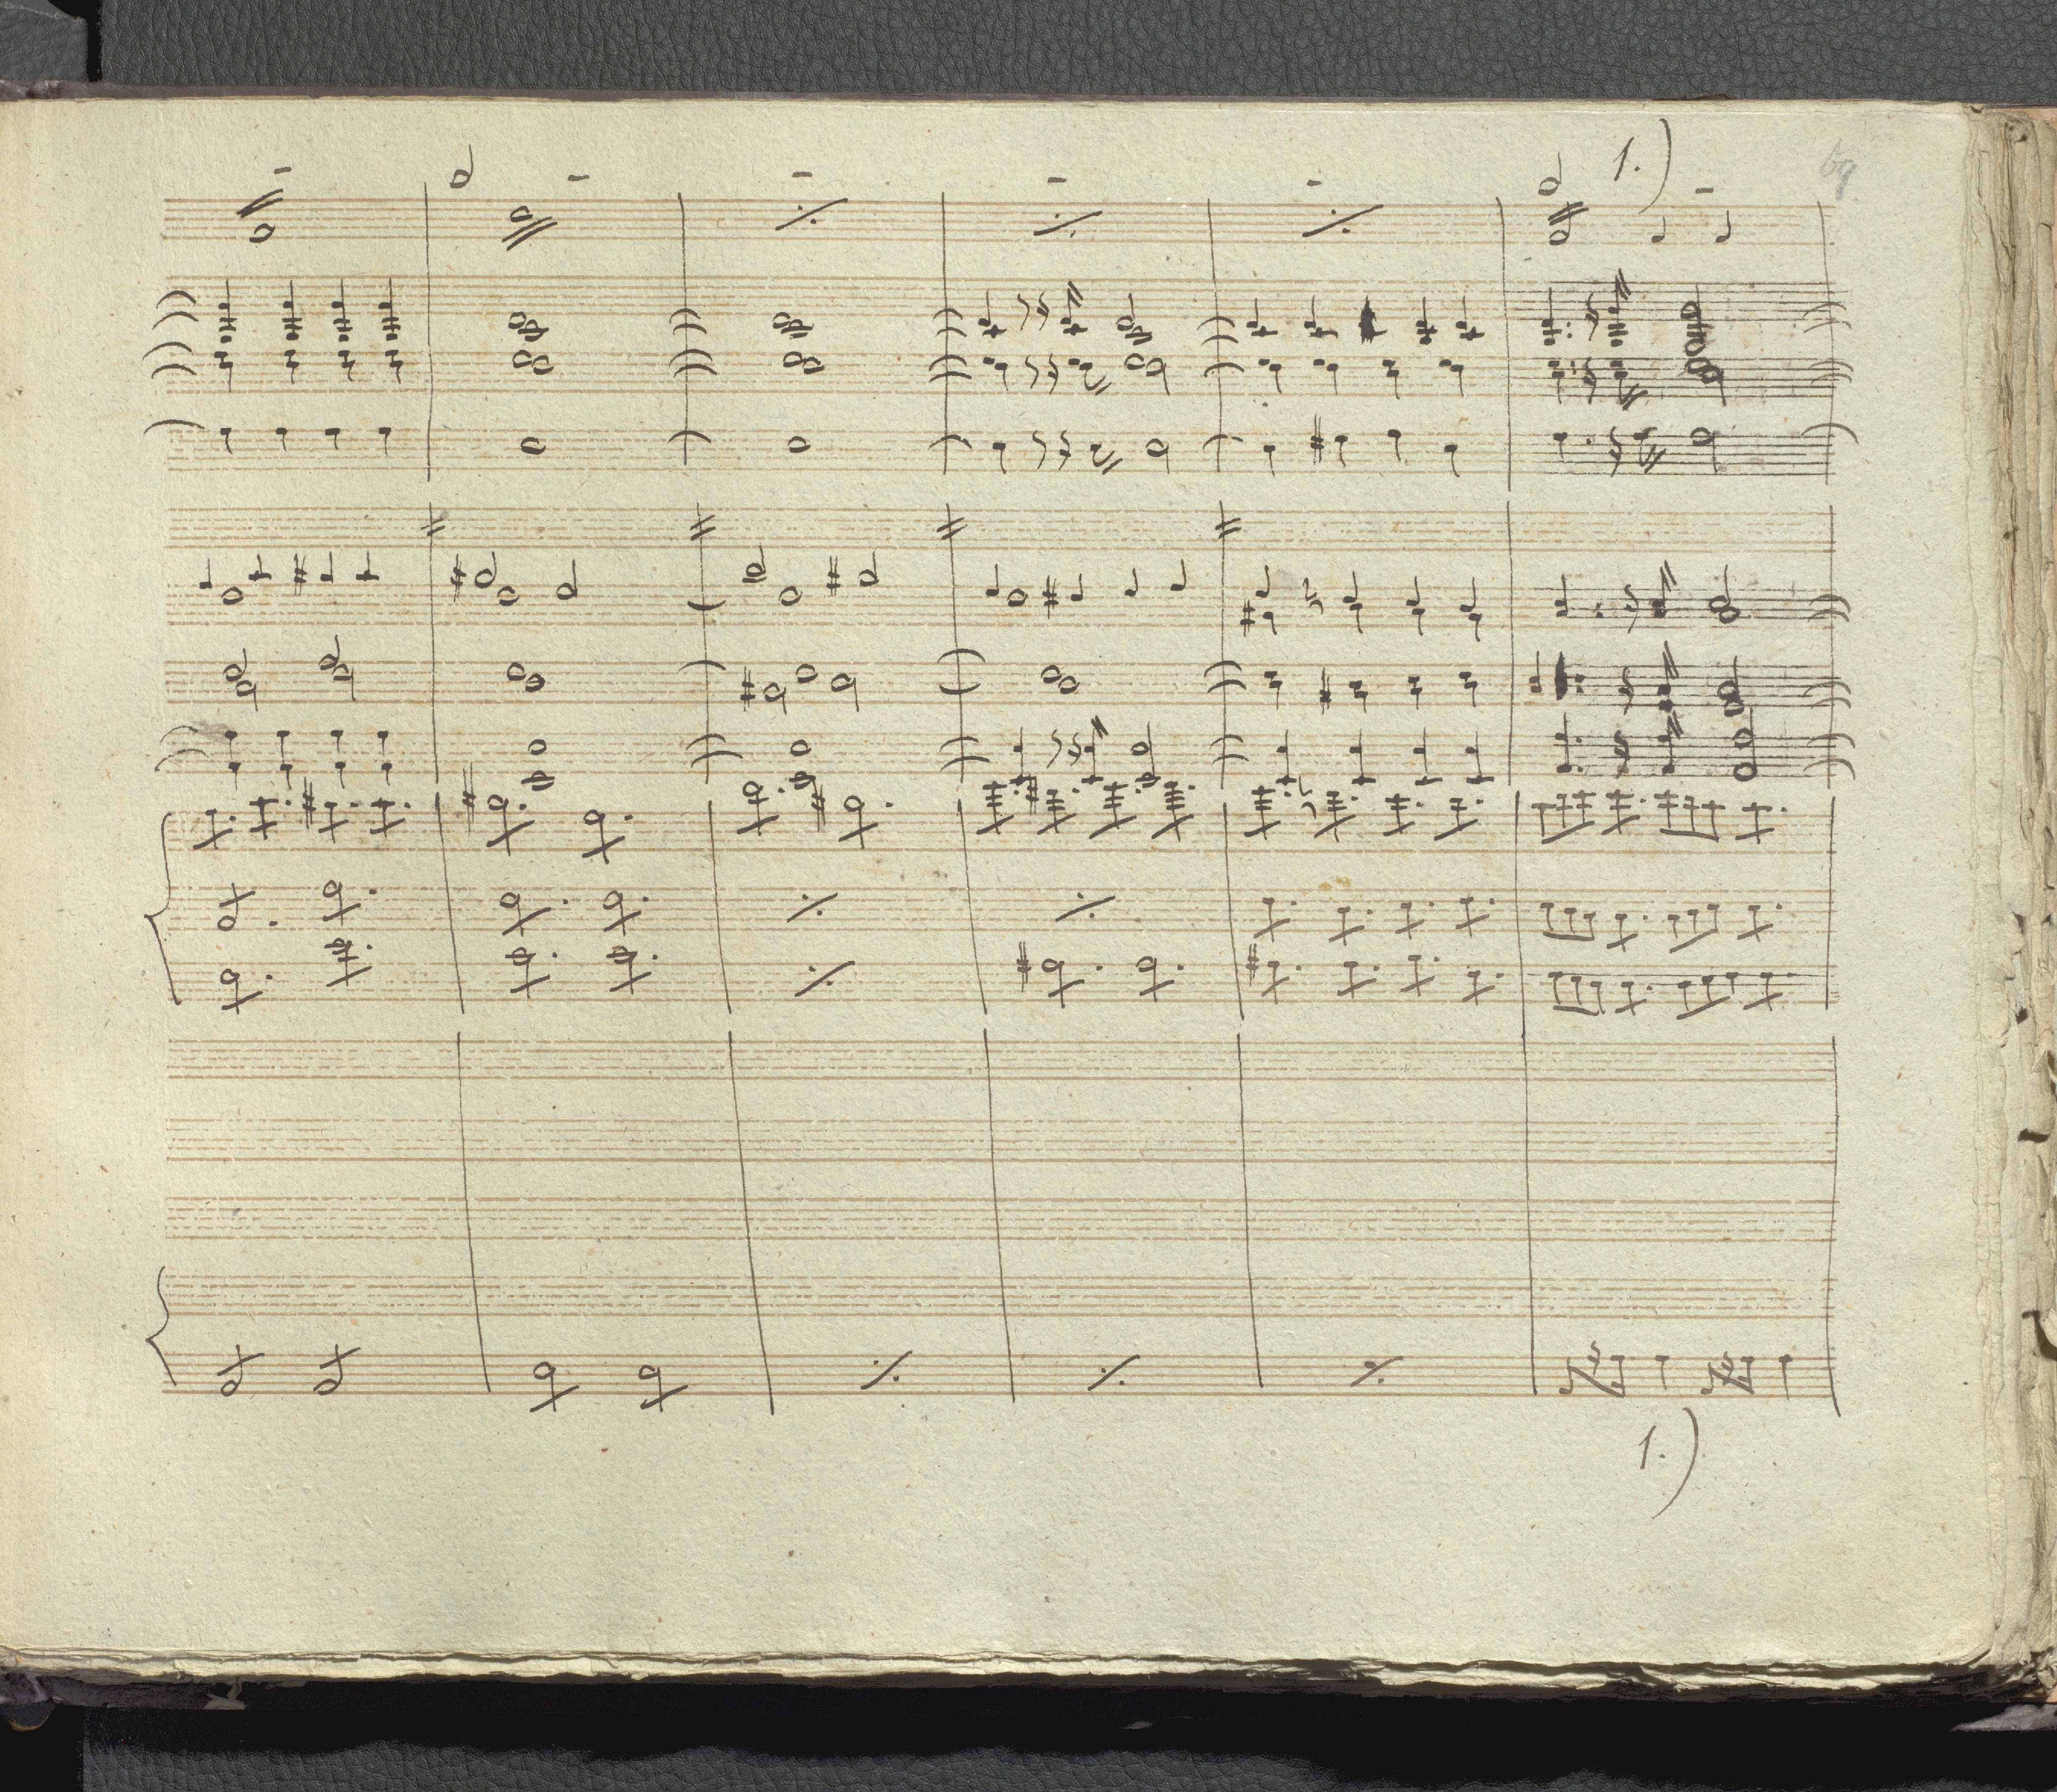 1.)
69
1.)